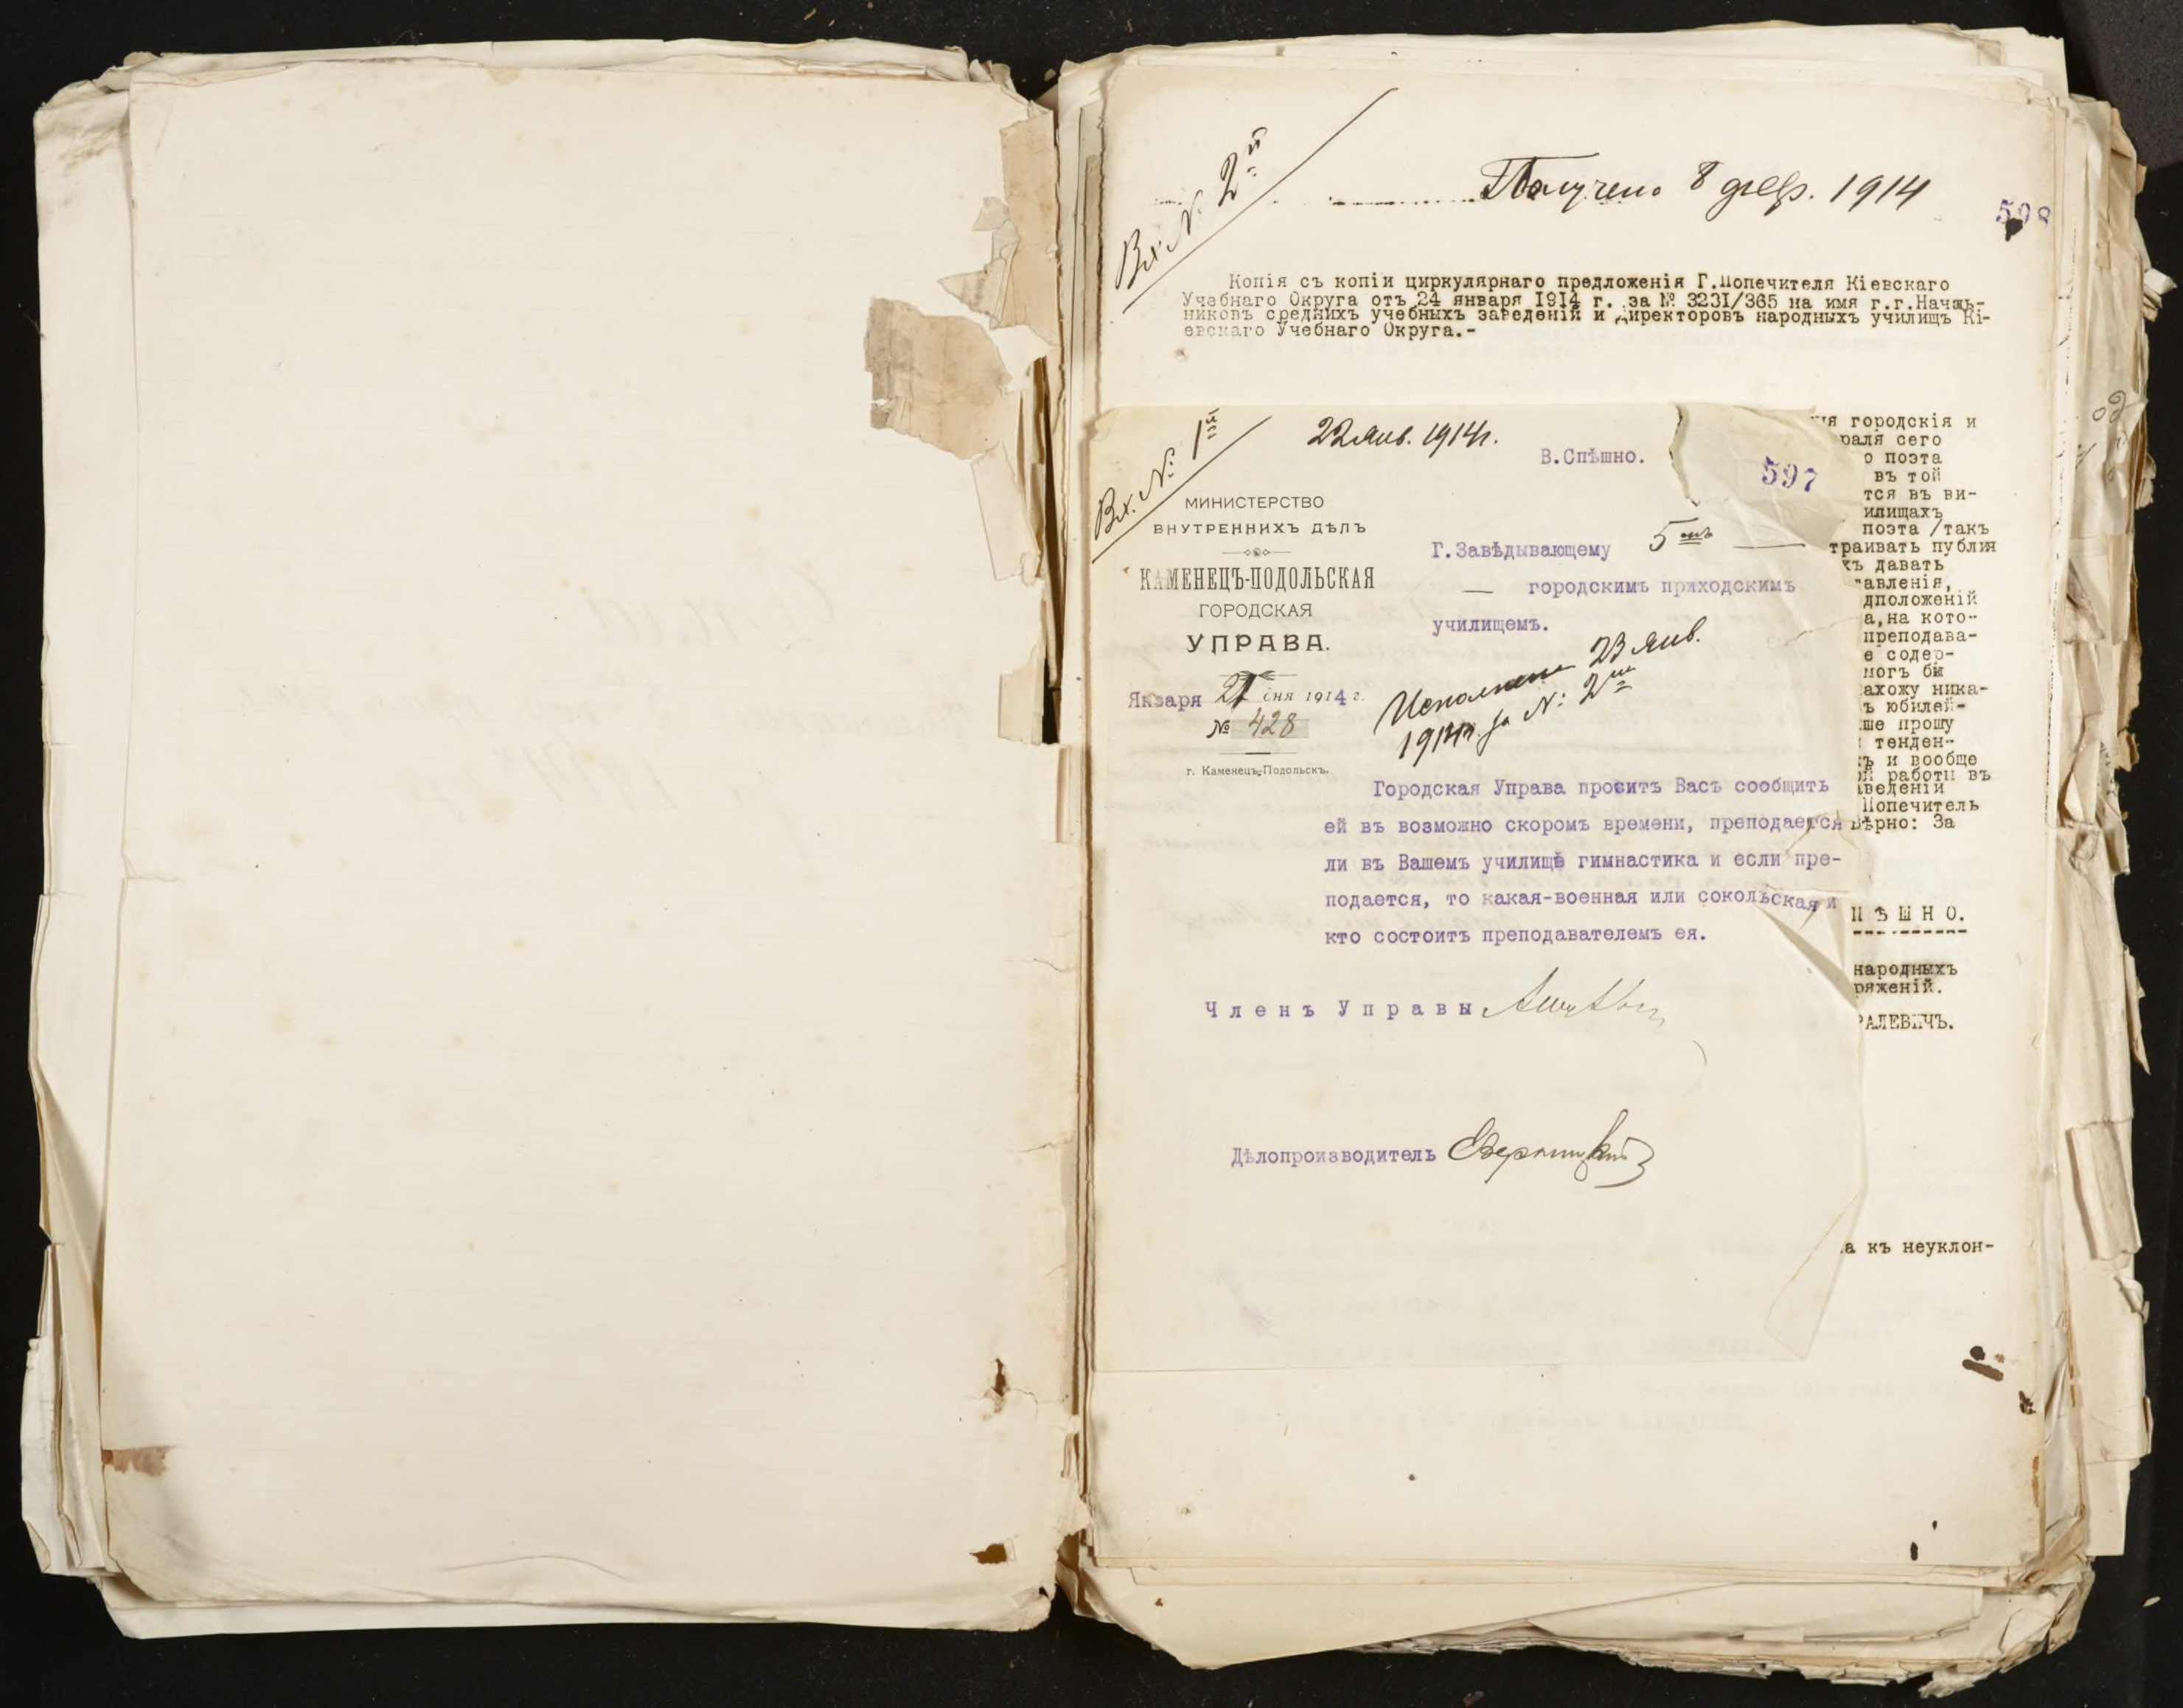 Вх. № 2й
Получено 8 февр. 1914
598
Копія съ копіи циркулярнаго предложенія Г.Попечителя Кіевскаго
Учебнаго Округа отъ 24 января 1914 г. за № 3231/365 на имя г.г.Началь-
никовъ среднихъ учебныхъ заведеній и Директоровъ народныхъ училищъ Кі-
евскаго Учебнаго Округа.-
Вх. №: 1й
22 янв. 1914г.
В.Спѣшно.
597
МИНИСТЕРСТВО
ВНУТРЕННИХЪ ДѢЛЪ
КАМЕНЕЦЪ-ПОДОЛЬСКАЯ
ГОРОДСКАЯ
УПРАВА.
Января 21 дня 1914 г.
№ 428
г. Каменецъ-Подольскъ.
Г.Завѣдывающему 5мъ
— городскимъ приходскимъ
училищемъ.
Исполнено 23 янв.
1914г. за №: 2мъ
Городская Управа проситъ Васъ сообщить
ей въ возможно скоромъ времени, преподается
ли въ Вашемъ училищѣ гимнастика и если пре-
подается, то какая-военная или сокольская и
кто состоитъ преподавателемъ ея.
Членъ Управы
Дѣлопроизводитель
городскія и
раля сего
о поэта
въ той
тся въ ви-
илищахъ
поэта /такъ
траивать публич
хъ давать
авленія,
дположеній
а,на кото-
преподава-
е содер-
могъ бы
ахожу ника-
ъ юбилей-
ше прошу
тенден-
ъ и вообще
ой работы въ
аведеній
Попечитель
Вѣрно: За
П Ѣ Ш Н О.
народныхъ
ряженій.
РАЛЕВИЧЪ.
а къ неуклон-